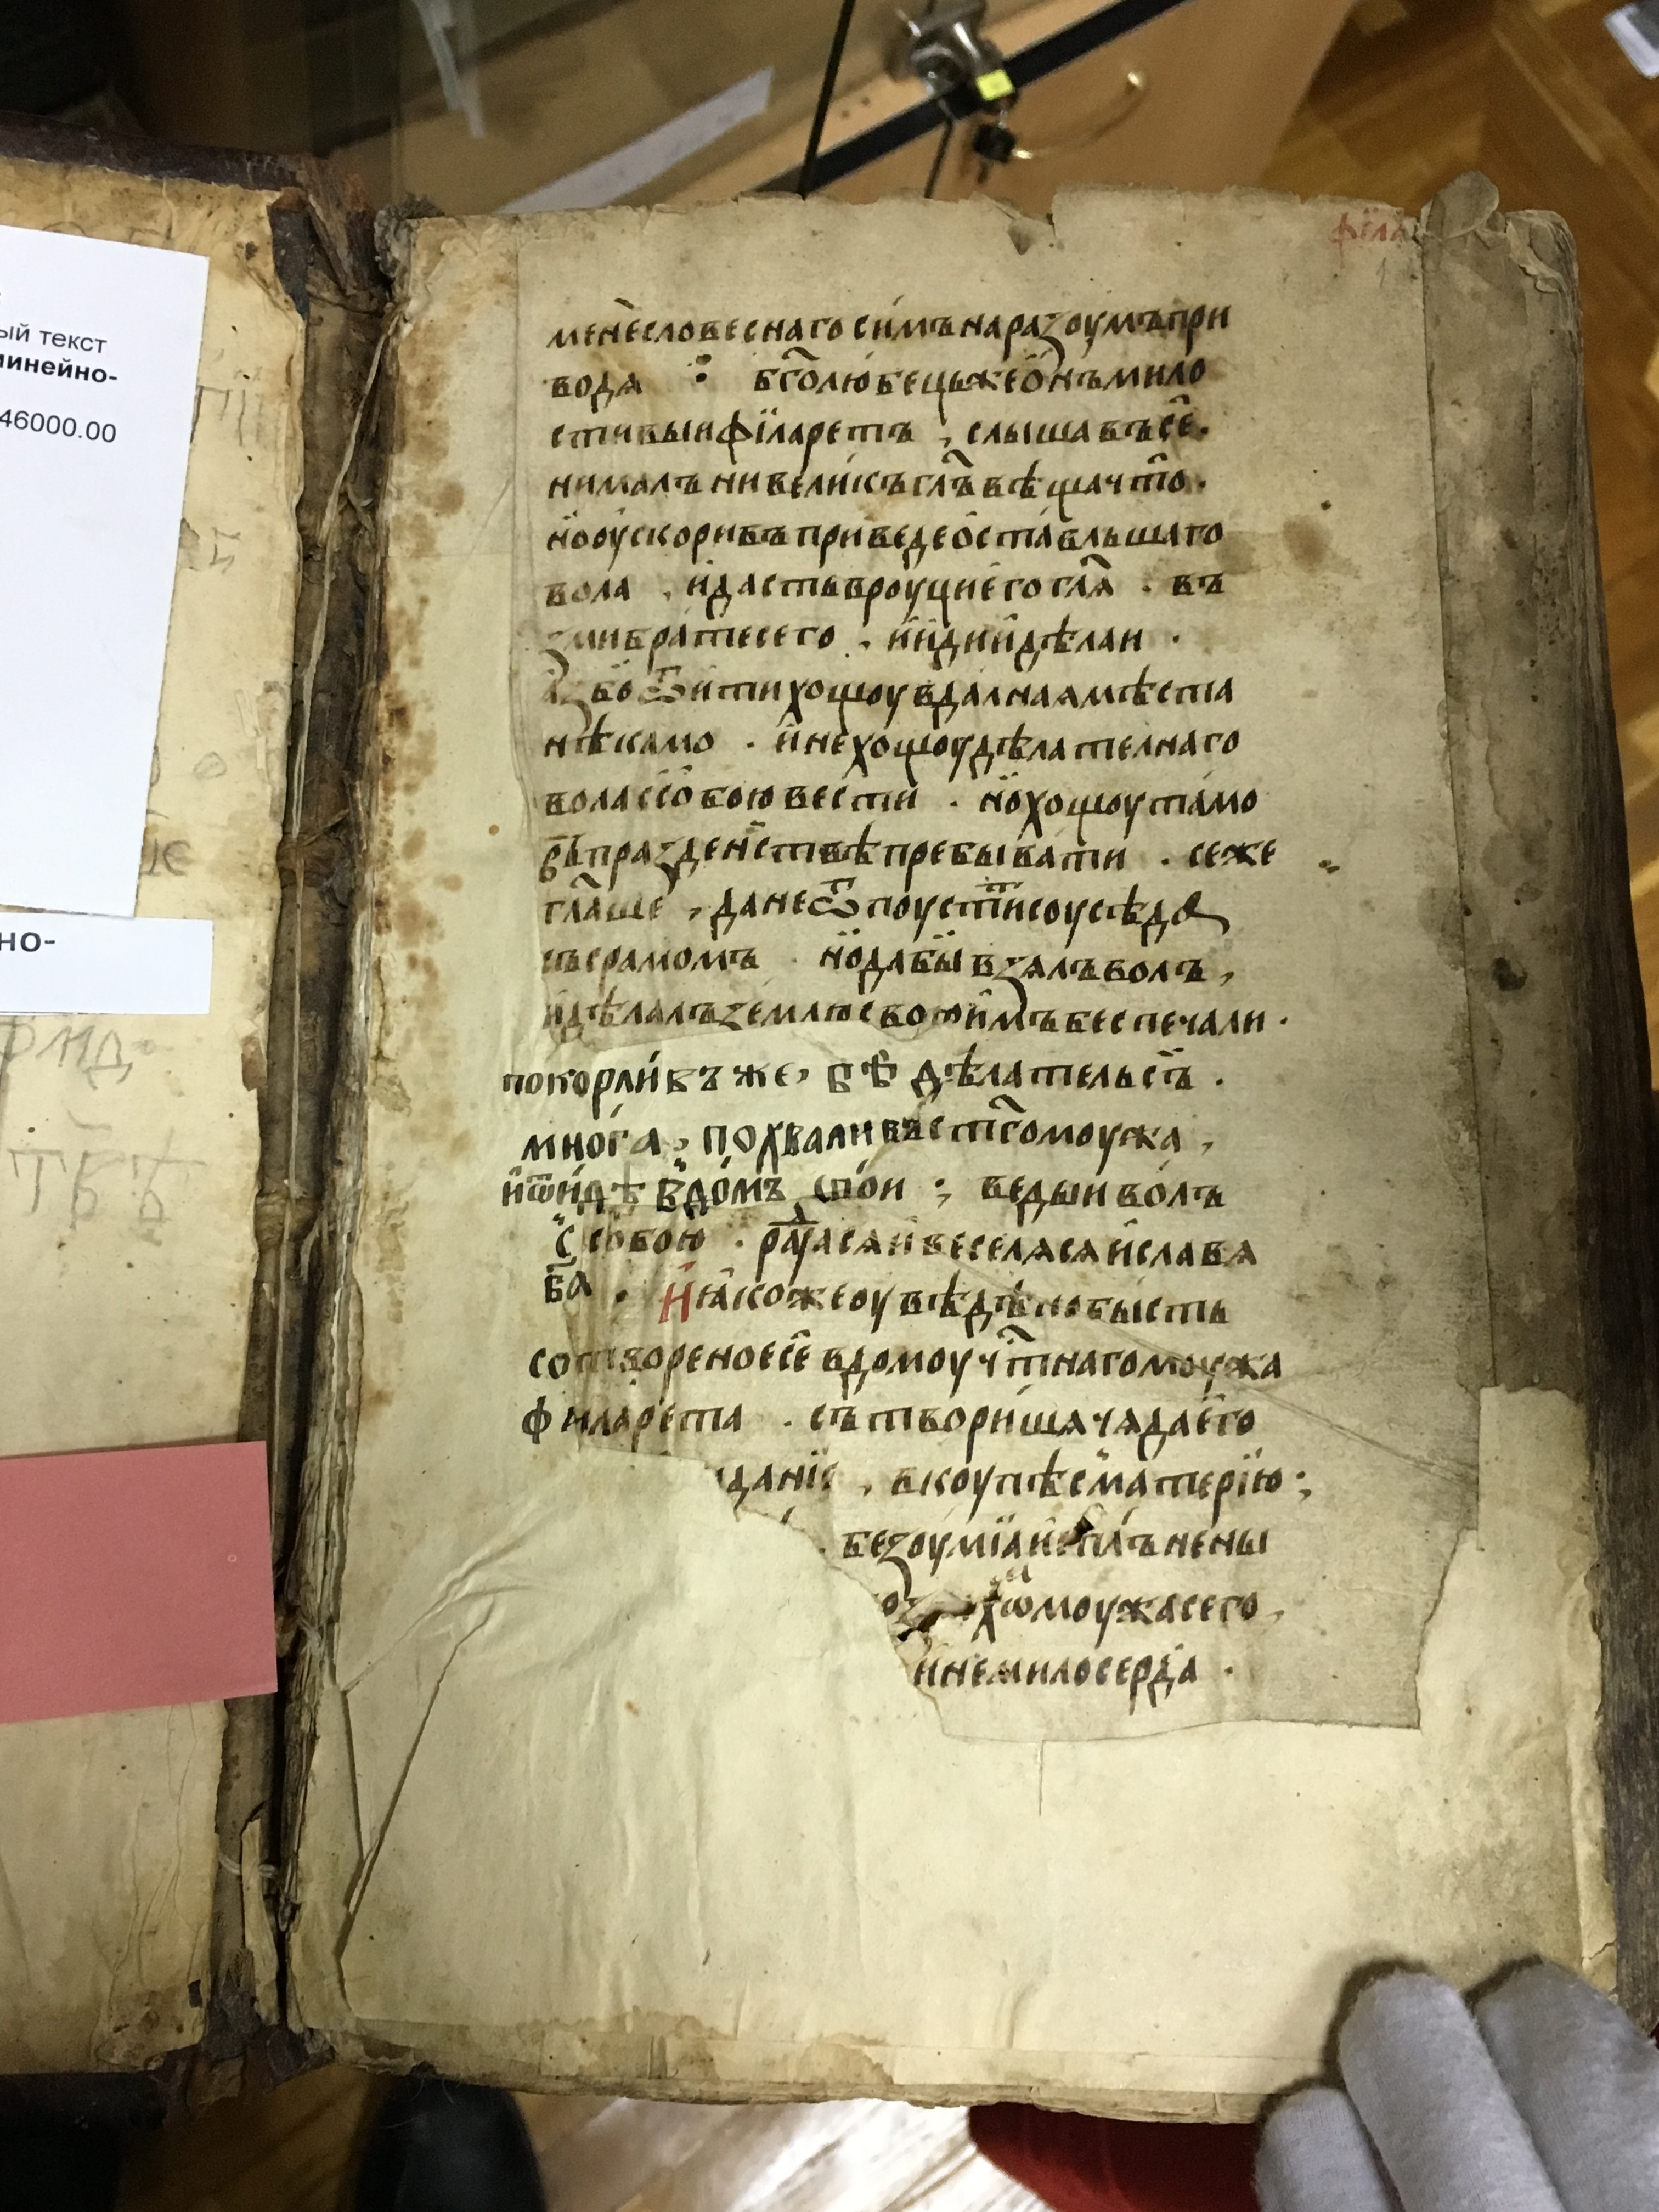 ый текст
минейно-
46000.00
но-
фила
менесловеснагосимънаразоумъпри
водѧ : бг҃олюбецьжеѻнъмило
стивыифїларетъ , слышавъсе.
нималъниве́ликъгл҃ъвѣщачто.
нооускоривъприведеѻста́вльшаго
вола , идастьвроуциего гл҃ѧ . въ
змибратесего . иидиидѣлаи .
азбоѿитихощоувдалнаꙗмѣста
нѣкамо . инехощоудѣлателнаго
волассобоювести . нохощоутамо
въпразденствѣпребывати . сеже
гл҃аше , данеѿпоуститисоусѣда
съсрамомъ . нодабывзѧлъволъ ,
идѣлалъземлюсвоюимъбеспечали .
покорли́въ же, бѣ дѣлательсъ .
мно́га , похваливъст҃гомоужа ,
иѿидѣ вдо́мъ сво́и ; ведыиволъ
ссобою . радꙋасѧивеселѧсѧиславѧ
ба҃ . Иꙗкожеоувѣдѣнобысть
сотвореноесе вдомоучт҃нагомоужа
филарета . сътворишачѧдаего
иданїе , вкоупѣсматерїю ;
. безоумїаиисплънены
хѡмоужасего ,
инемилосердїа .